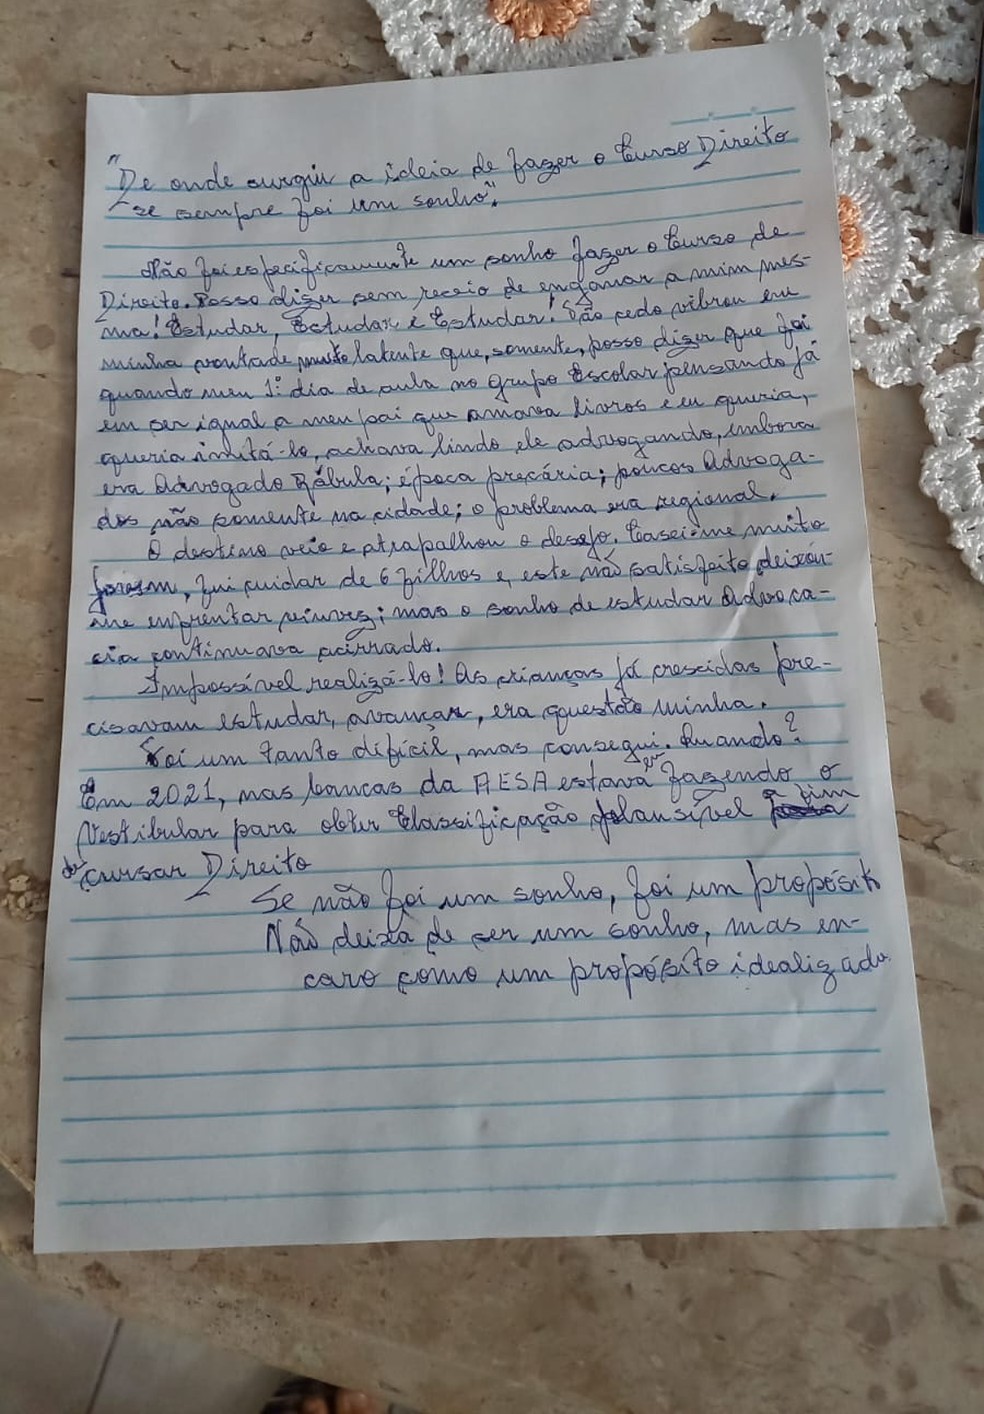 "De onde surgiu a ideia de fazer o Curso Direito
se sempre foi um sonho".
Não foi especificamente um sonho fazer o Curso de
Direito. Posso dizer sem receio de enganar a mim mes-
ma! Estudar, Estudar e Estudar! Tão cedo vibrou em
minha vontade muito latente que, somente, posso dizer que foi
quando meu 1º dia de aula no grupo Escolar pensando já
em ser igual a meu pai que amava livros e eu queria,
queria imitá-lo, achava lindo ele advogando, embora
era Advogado Rábula; época precária; poucos Advoga-
dos não somente na cidade; o problema era regional.
O destino veio e atrapalhou o desejo. Casei-me muito
jovem, fui cuidar de 6 filhos e, este não satisfeito deixou-
me enfrentar viuvez; mas o sonho de estudar Advoca-
cia continuava acirrado.
Impossível realizá-lo! As crianças já crescidas pre-
cisavam estudar, avançar, era questão minha.
Foi um tanto difícil, mas consegui. Quando?
Em 2021, nas bancas da AESA estava eu fazendo o
Vestibular para obter Classificação plausível a fim
de cursar Direito
Se não foi um sonho, foi um propósito
Não deixa de ser um sonho, mas en-
caro como um propósito idealizado